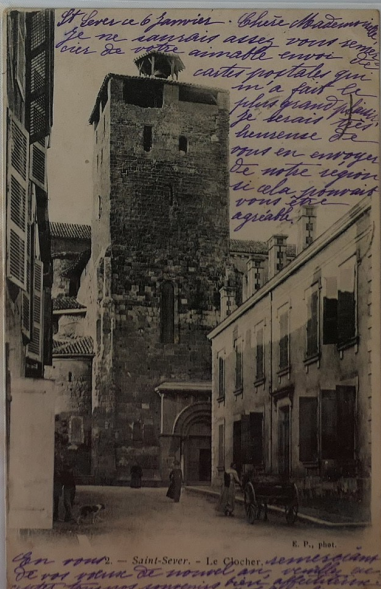 St Sever ce 6 Janvier. Chère Mademoiselle
je ne saurais assez vous remer
cier de votre aimable envoi de
cartes postales qui
m'a fait le
plus grand plaisir
je serais très
heureuse de
vous en envoyer
de notre région
si cela pouvait
vous être
agréable.
E. P., phot.
2. — Saint-Sever. - Le Clocher.
En vous remerciant
de vos vœux de nouvel an, veuillez